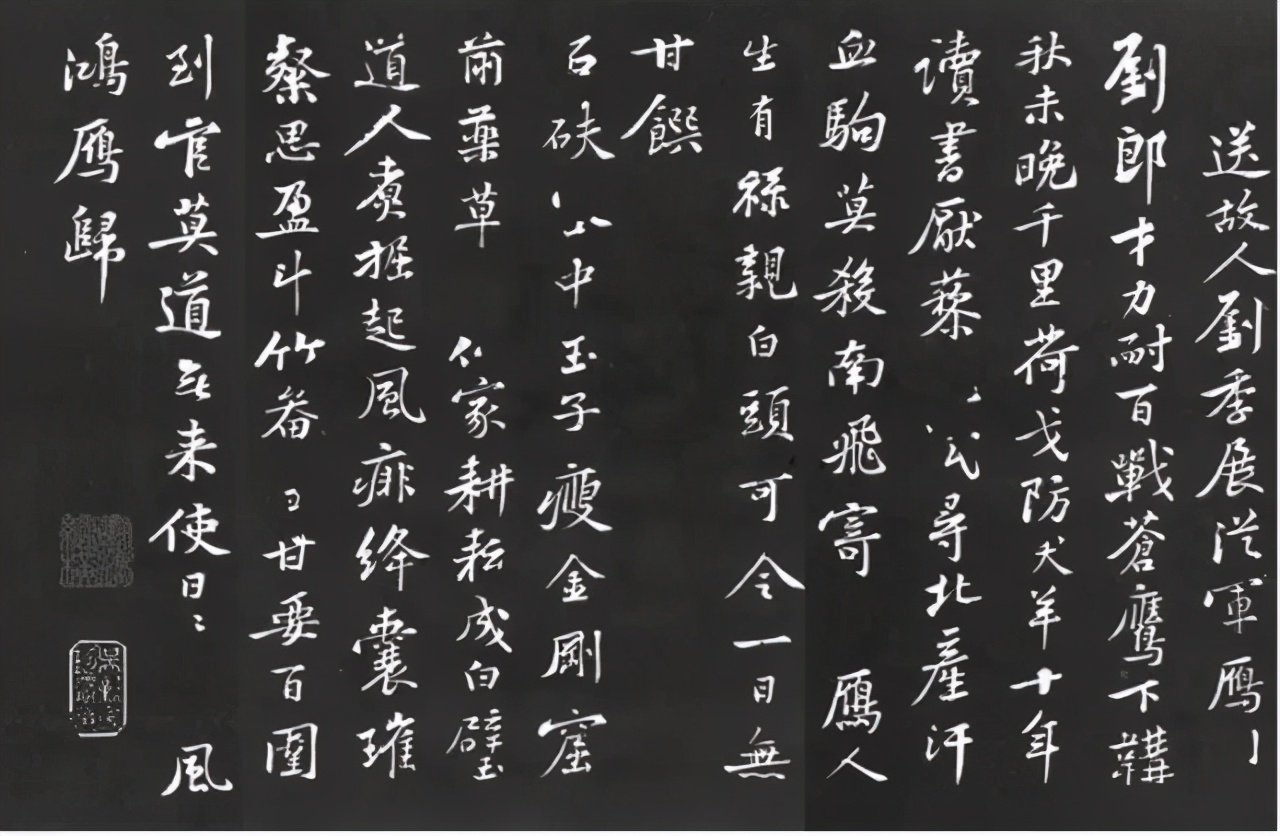 送故人劉季展從軍鴈
劉郎才力耐百戰蒼鷹下韝
秋未晚千里荷戈防犬羊十年
讀書厭藜尋北產汗
血駒莫殺南飛寄鴈人
生有祿親白頭可令一日無
甘饌
石砆中玉子瘦金剛窟
前藥草家耕耘成白璧
道人煮掘起風痱絳囊璀
璨思盈斗竹畚甘要百圍
到官莫道無来使日〻風
鴻鴈歸